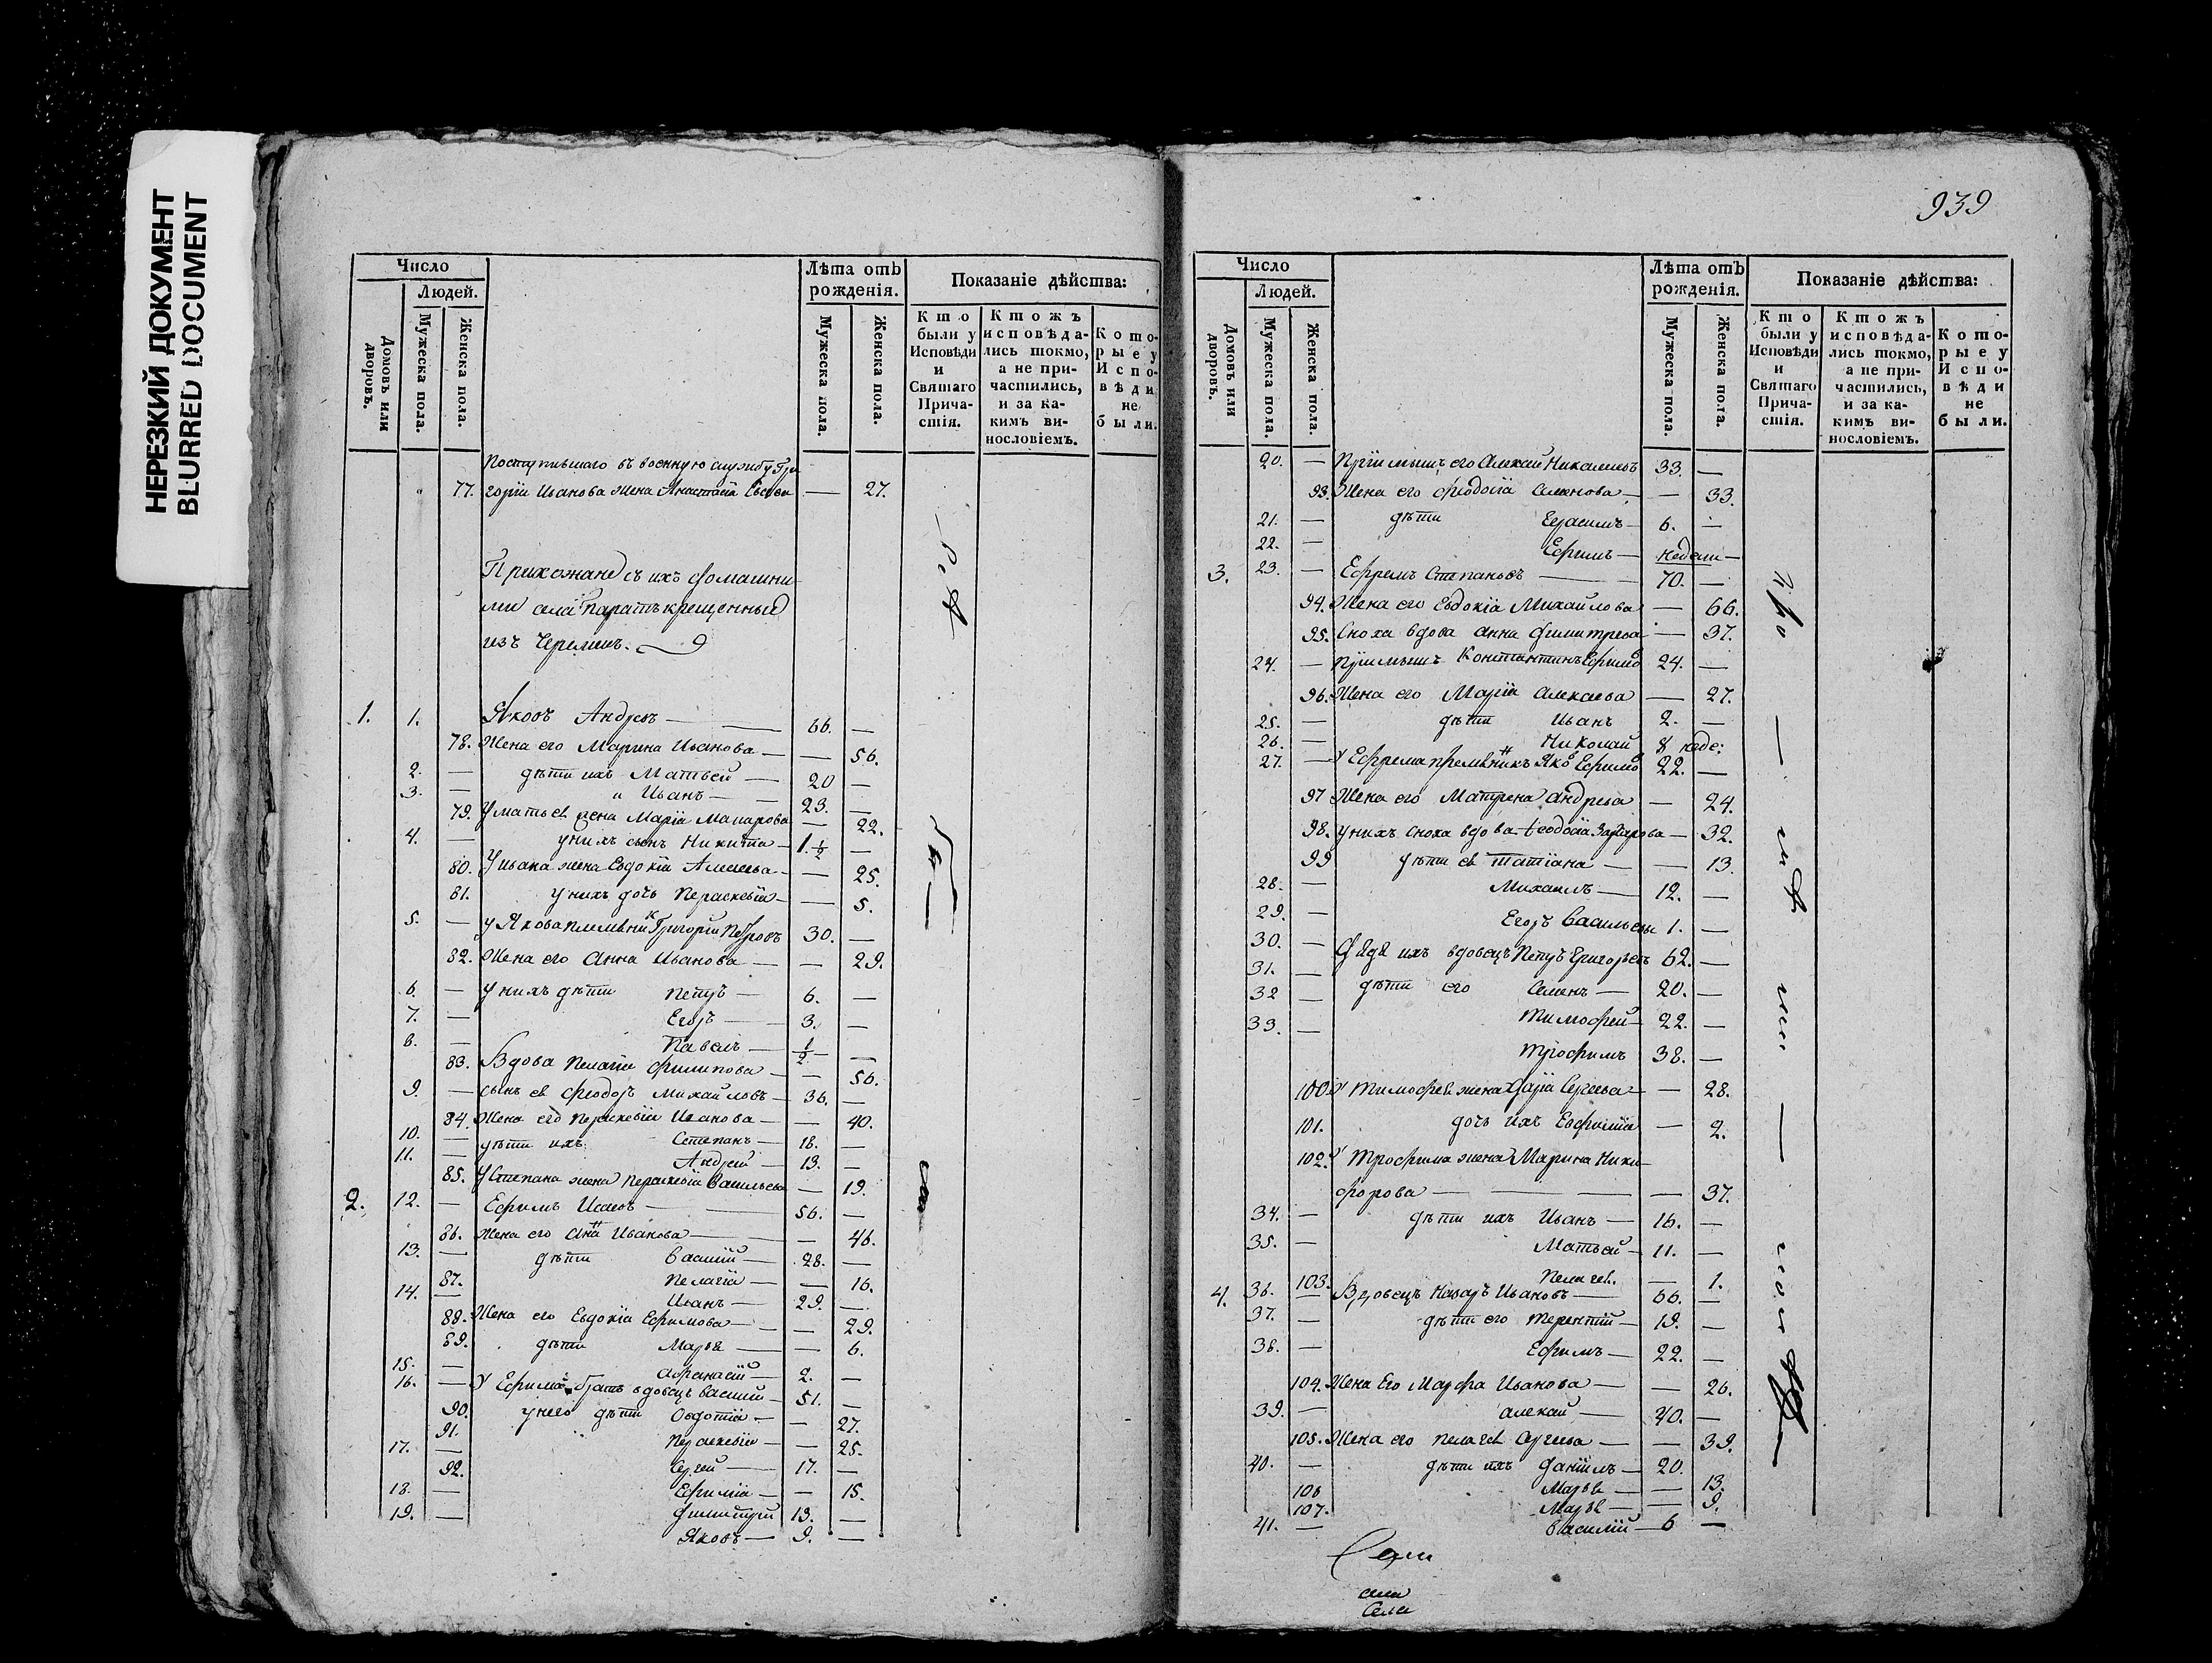 НЕРЕЗКИЙ ДОКУМЕНТ
BLURRED DOCUMENT
Число
Людей.
Домовъ или дворовъ.
Мужеска пола.
Женска пола.
Лѣта отъ рожденія.
Мужеска пола.
Женска пола.
Показаніе дѣйства:
Кто были у Исповѣди и Святаго Причастія.
Ктожъ исповѣдались токмо, а не причастились, и за какимъ винословіемъ.
Которые у Исповѣди не были.
Поступившаго въ военную службу Гри
77. горія Иванова жена Анастасія — 27.
Прихожане съ ихъ домашни
ми села Паратъ крещенные
изъ Черемисъ.
1. 1. Яковъ Андреевъ — 66. —
78. Жена его Марина Иванова — — 56.
2. — дѣти ихъ Матвей — 20 —
3. — и Иванъ — 23. —
79. У Матвея жена Марія Макарова — 22.
4. — у нихъ сынъ Никита — 1. 1/2 —
80. У Ивана жена Евдокія Алексеева — — 25.
81. у нихъ дочь Параскевія — — 5.
5. — у Якова племянникъ Григорій Петровъ 30. —
82. Жена его Анна Иванова — — 29.
6. — у нихъ дѣти Петръ — 6. —
7. — Егоръ — 3. —
8. — Павелъ — 1/2 —
83. Вдова Пелагія Филипова — — 56.
9. — сынъ ея Феодоръ Михайловъ — 36. —
84. Жена его Параскевія Иванова — — 40.
10. — дѣти ихъ Степанъ — 18. —
11. — Андрей — 13. —
85. У Степана жена Параскевія Васильева — 19.
2. 12. — Ефимъ Исаевъ — 56. —
86. Жена его Анна Иванова — — 46.
13. — дѣти Василій — 28. —
87. Пелагія — — 16.
14. — Иванъ — 29. —
88. Жена его Евдокія Ефимова — — 29.
89. дѣти Марья — — 6.
15. — Афанасій — 2. —
16. — У Ефима братъ вдовецъ Василій — 51. —
90. у него дѣти Овдотія — — 27.
91. Параскевія — — 25.
17. — Сергей — 17. —
92. Ефимія — — 15.
18. — Димитрій 13. —
19. — Яковъ — 9. —
939
Число
Людей.
Домовъ или дворовъ.
Мужеска пола.
Женска пола.
Лѣта отъ рожденія.
Мужеска пола.
Женска пола.
Показаніе дѣйства:
Кто были у Исповѣди и Святаго Причастія.
Ктожъ исповѣдались токмо, а не причастились, и за какимъ винословіемъ.
Которые у Исповѣди не были.
20. — Пріимышъ его Алексей Николаевъ 33. —
93. Жена его Феодосія Семенова — — 33.
21. — дѣти Герасимъ — 6. —
22. — Ефимъ — недели —
3. 23. — Ефремъ Степановъ — 70. —
94. Жена его Евдокія Михайлова — 66.
95. Сноха вдова Анна Димитрева — 37.
24. — Пріимышъ Константинъ Ефимов 24. —
96. Жена его Марія Алексеева — 27.
25. — дѣти Иванъ 2. —
26. — Николай 8 неде:
27. — У Ефрема Яков Ефимов 22. —
97 Жена его Матрена Андреева — 24.
98. у нихъ сноха вдова Феодосія Захарова — 32.
99 дѣти ея Татіана — — 13.
28. — Михаилъ — 12. —
29. — Егоръ Васильевы 1. —
30. — Дядя ихъ вдовецъ Петръ Григорьевъ 62. —
31. — дѣти его Семенъ — 20. —
32 — Тимофей — 22. —
33. — Трофимъ 38. —
100. У Тимофея жена Дарія Сергеева — — 28.
101. дочь ихъ Евфимія — 2.
102. У Трофима жена Марина Ники—
форова — — 37.
34. — дѣти ихъ Иванъ — 16. —
35. — Матвей — 11. —
103. Пелагея. — 1.
4. 36. — Вдовецъ Назаръ Ивановъ — 66. —
37. — дѣти его Терентій — 19. —
38. — Ефимъ — 22. —
104. Жена Его Марфа Иванова — — 26.
39. — Алексей — 40. —
105. Жена его Пелагея Сергеева — — 39.
40. — дѣти ихъ Даніилъ — 20.
106 Марья — — 13.
107. Марья — — 9.
41. — Василій — 6 —
Села